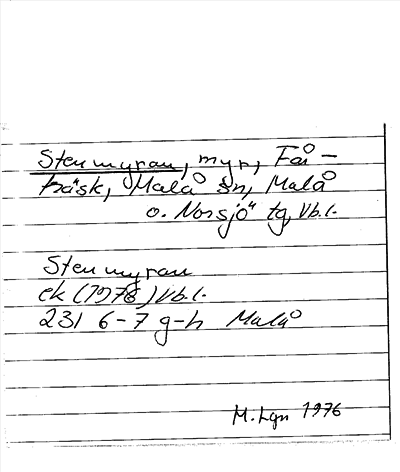 Stenmyran, myr, Få-
träsk, Malå sn, Malå
o. Norsjö tg, Vb.l.
Stenmyran
ek (1978) Vb.l.
231 6-7 g-h Malå
M. Lgn 1976